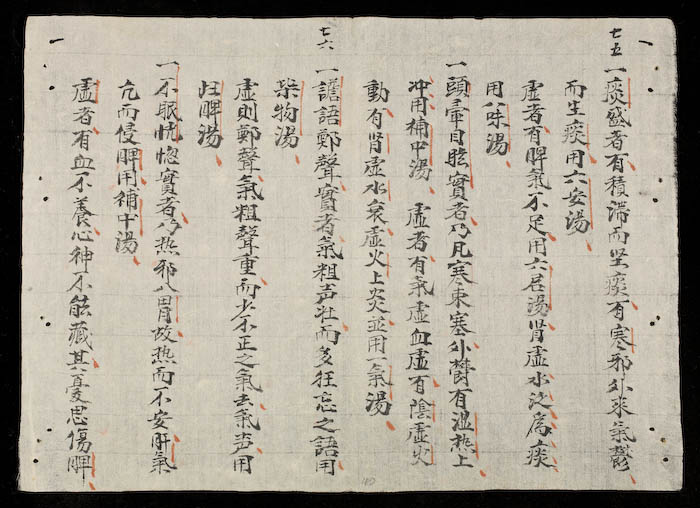 七五
一痰盛者有積滞而生痰有寒邪外来氣鬱
而生痰用六安湯
虚者有脾氣不足用六君湯腎虚水泛為痰
用八味湯
一頭暈目眩實者乃凡寒束塞外欝有温热上
冲用補中湯 虚者有氣虚血虚有陰虚火
動有肾虚水衰虚火上炎並用一氣湯
七六
一譫語鄭聲實者氣粗声壮而多狂忘之語用
柴物湯
虚則鄭聲氣粗聲重而少不正之氣去氣声用
归脾湯
一不眠恍惚實者乃热邪入胃故热而不安肝氣
亢而侵脾用補中湯
虚者有血不養心神不能藏其憂思傷脾